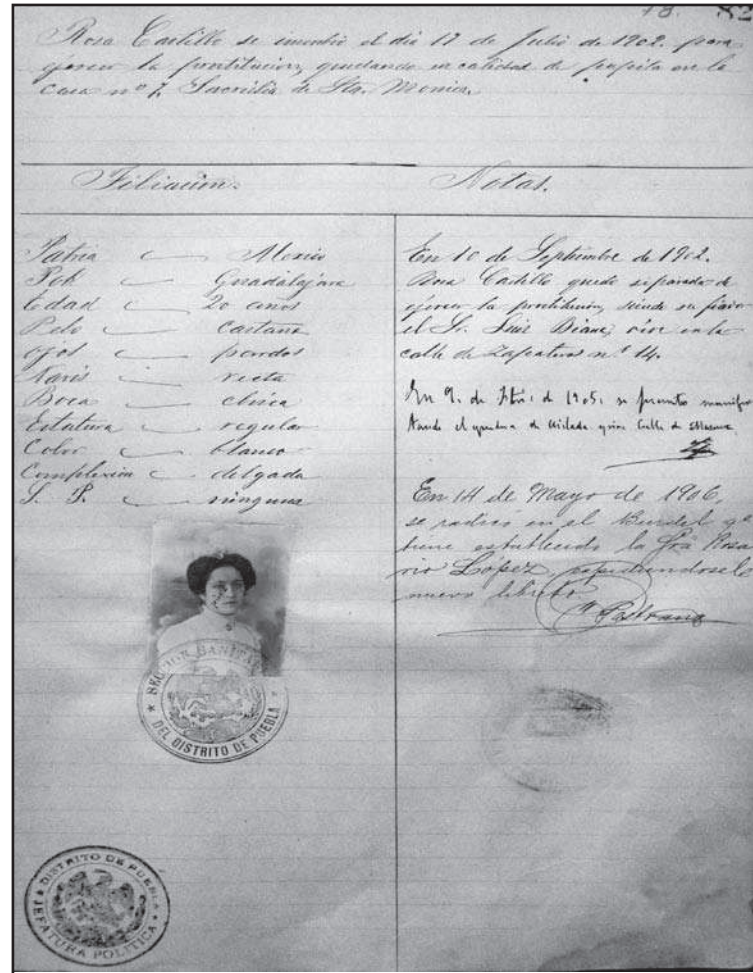 Rosa Castillo se inscribió el día 17 de Julio de 1902. para
ejercer la prostitucion, quedando en calidad de pupila en la
casa nº 7. Sacristia de Sta. Monica.
Filiacion.
Notas.
Patria Mexico
Pob Guadalajara
Edad 20 años
Pelo castaño
Ojos pardos
Naris recta
Boca chica
Estatura regular
Color blanco
Complexion delgada
S. P. ninguna
SECCION SANITARIA
DEL DISTRITO DE PUEBLA
DISTRITO DE PUEBLA
JEFATURA POLITICA
En 10 de Septiembre de 1902.
Rosa Castillo quedó separada de
ejercer la prostitucion, siendo su fiador
el Sr. Luis vive en la
calle de Zapateros n.º 14.
En 9. de de 1905. se presentó manifes
tando el de Aislada Calle de
En 14 de Mayo de 1906,
se radicó en el Burdel qe
tiene establecido la Sra Rosa
rio López, expidiendosele
nuevo libreto.